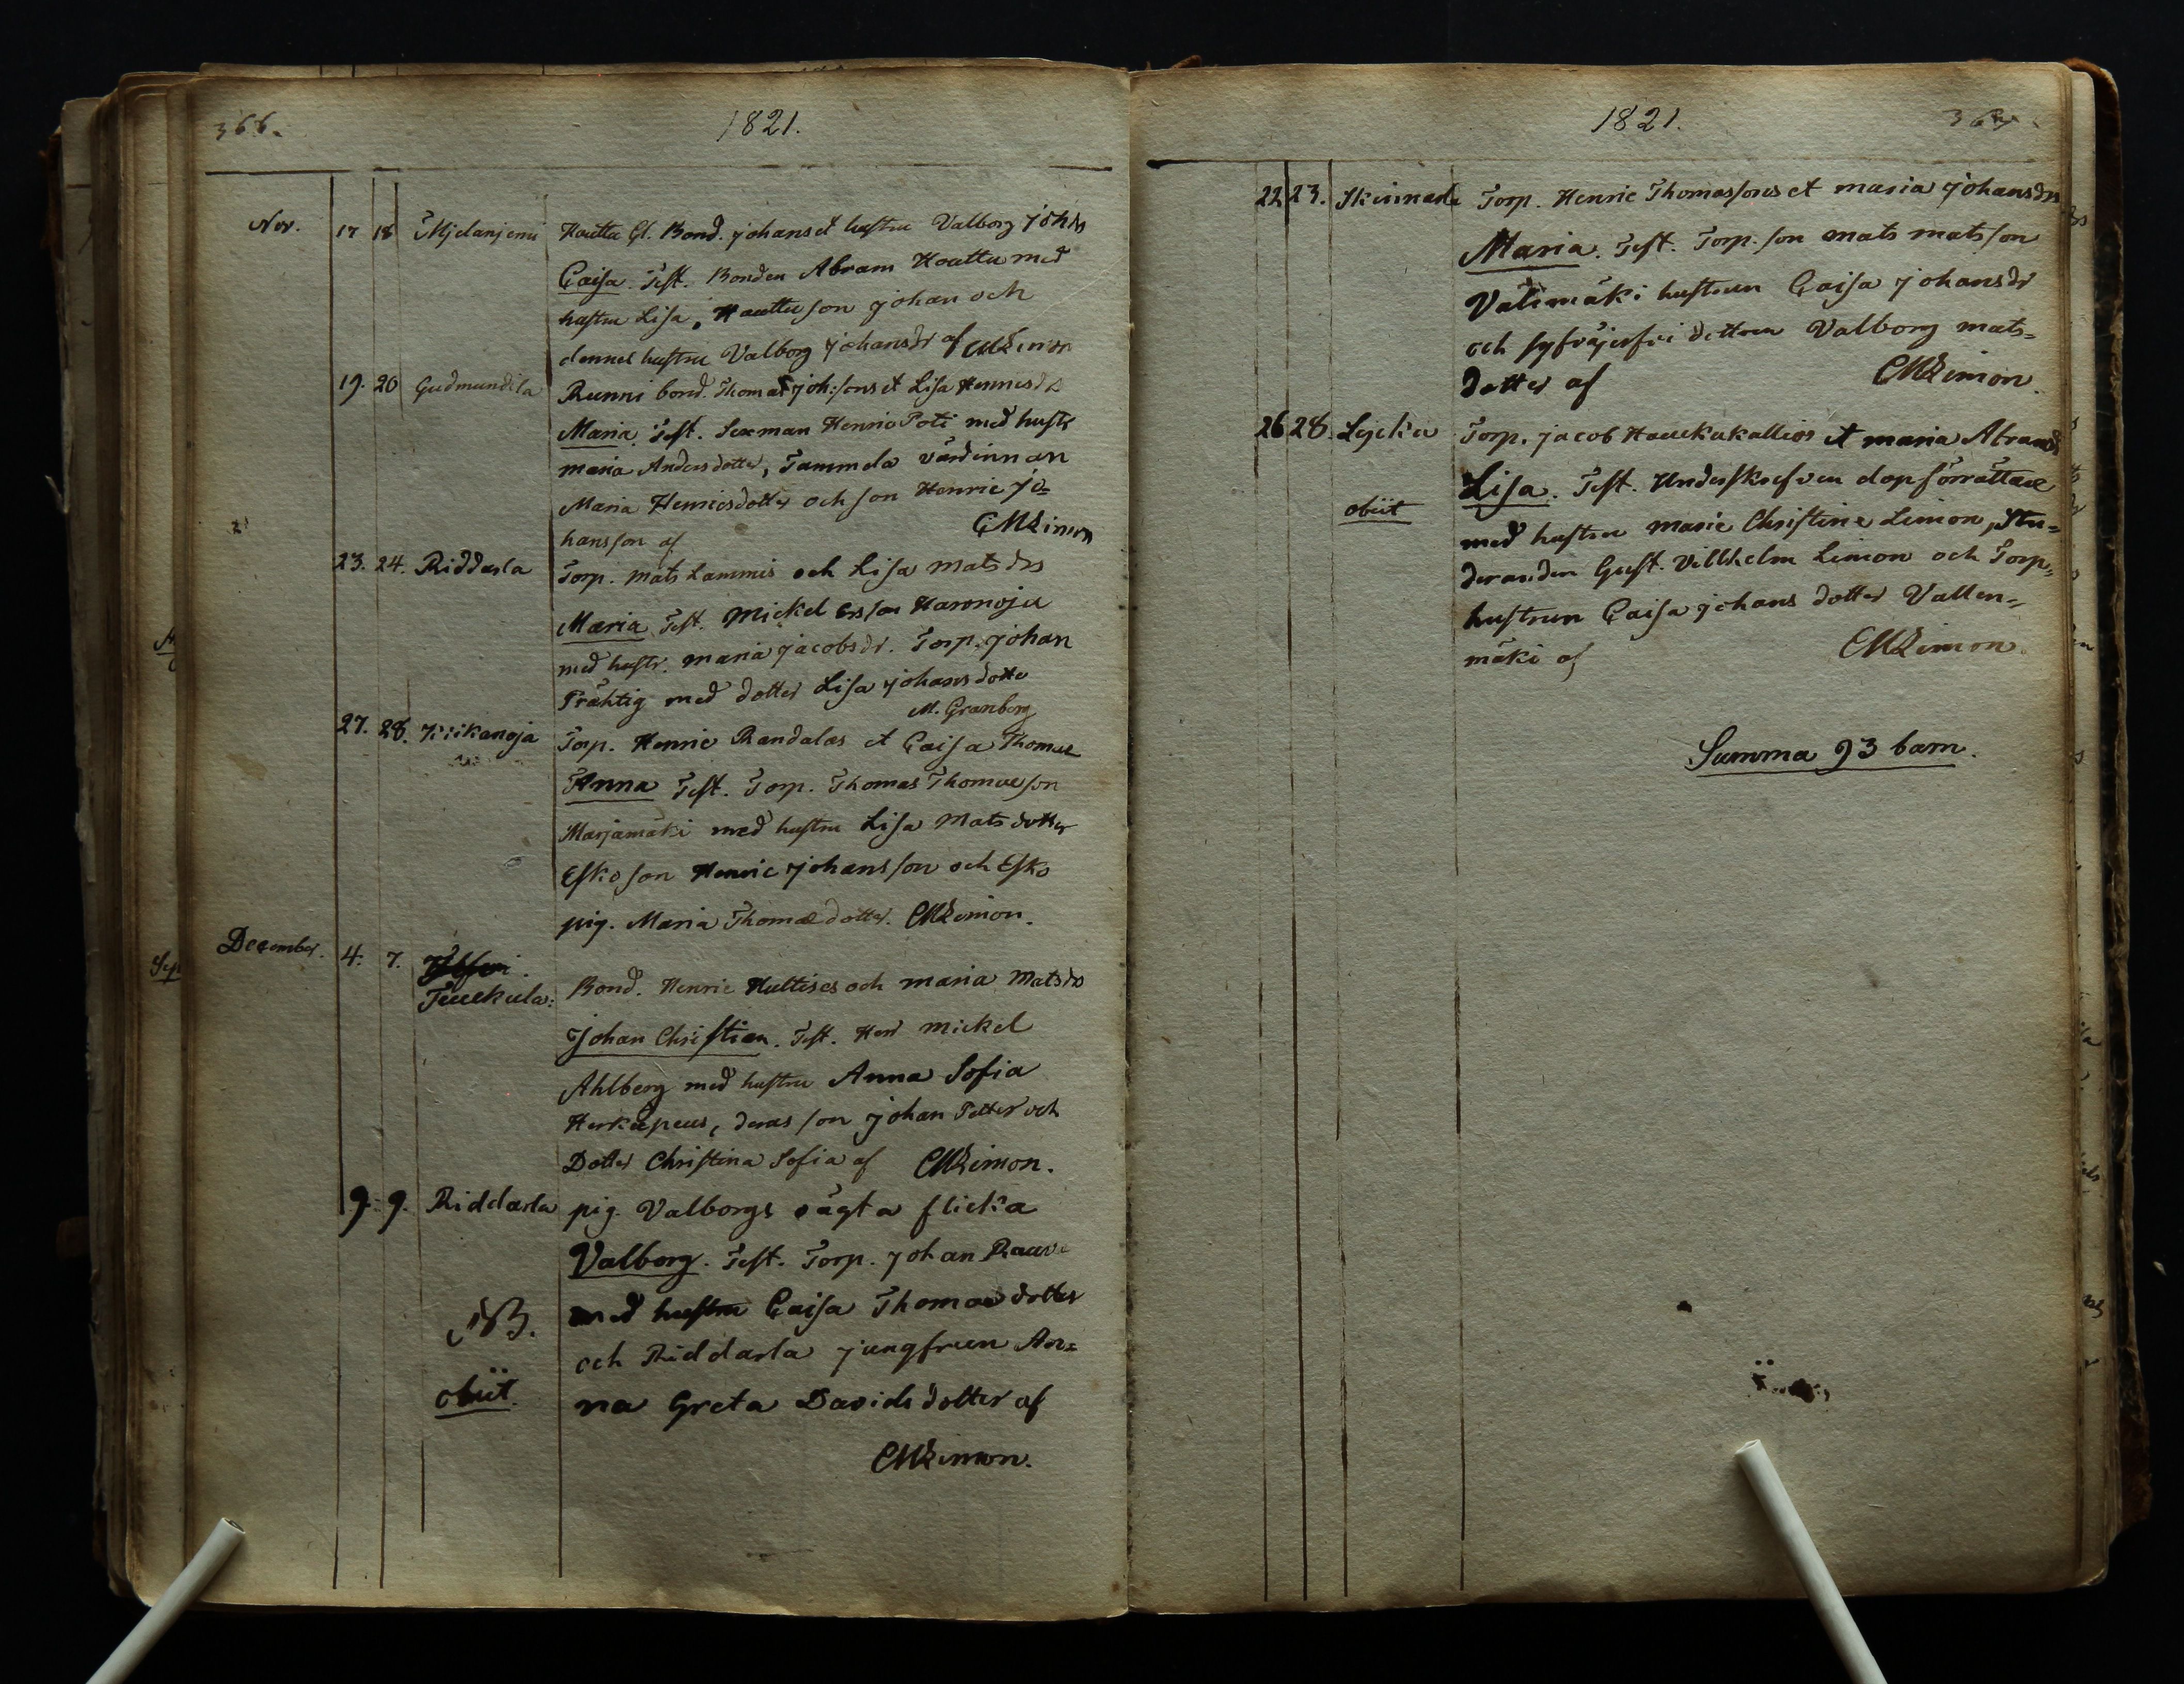 366.
1821.
Nov. 17 18 Mjelanjemi Houttu Gl. Bond. johans et hustru Valborg joh:ds
Caisa. Test. Bonden Abram Houttu med
hustru Lisa, Houttu son johan och
dennes hustru Valborg johansdr af CMLimon
19. 20 Gudmundila Runni bond. Thomas joh:sons et Lisa Hennesdr
Maria. Test. Sexman Henric Poti med hustr
maria Andersdotter, Tammela värdinnan
Maria Henricsdotter och son Henric jo=
hansson af CMLimon
23. 24. Riddarla Torp. mats Lammis och Lisa matsdrs
Maria Test. Mickel Ersson Haronoju
med hustr. maria jacobsdr. Torp. johan
Präktig med dotter Lisa johansdotter
M. Granberg
27. 28. Krikanoja Torp. Henric Randalas et Caisa Thomae
Anna Test. Torp. Thomas Thomaeson
Marjamäki med hustru Lisa Matsdotter
Esko son Henric johansson och Esko
pig. Maria Thomaedotter. CMLimon.
December. 4. 7.
Tuuekula: Bond. Henric Huttises och maria Matsdrs
Johan Christian. Test. Herr mickel
Ahlberg med hustru Anna Sofia
Herkæpeus, deras son johan Petter och
Dotter Christina Sofia af CMLimon.
9. 9. Riddarla pig. Valborgs oägta flicka
Valborg. Test. Torp. johan Rauvo
med hustru Caisa Thomaedotter
NB.
och Riddarla jungfrun An=
obiit. na Greta Davidsdotter af
CMLimon.
1821.
367.
22 23. Skinnarla Torp. Henric Thomassons et maria johansdrs
Maria. Test. Torp. son mats matsson
Valimäki hustrun Caisa johansdr
och sytväjerskei dottren Valborg mats=
dotter af CMLimon.
26 28. Lycka Torp. jacob Hauckakallios et maria Abrams
Lisa. Test. Underskrefven dopförrättare
obiit
med hustru maria Christine Limon, Stu=
deranden Gust. Villhelm Limon och Torp=
hustrun Caisa johans dotter Vallen=
mäki af CMLimon.
Summa 93 barn.